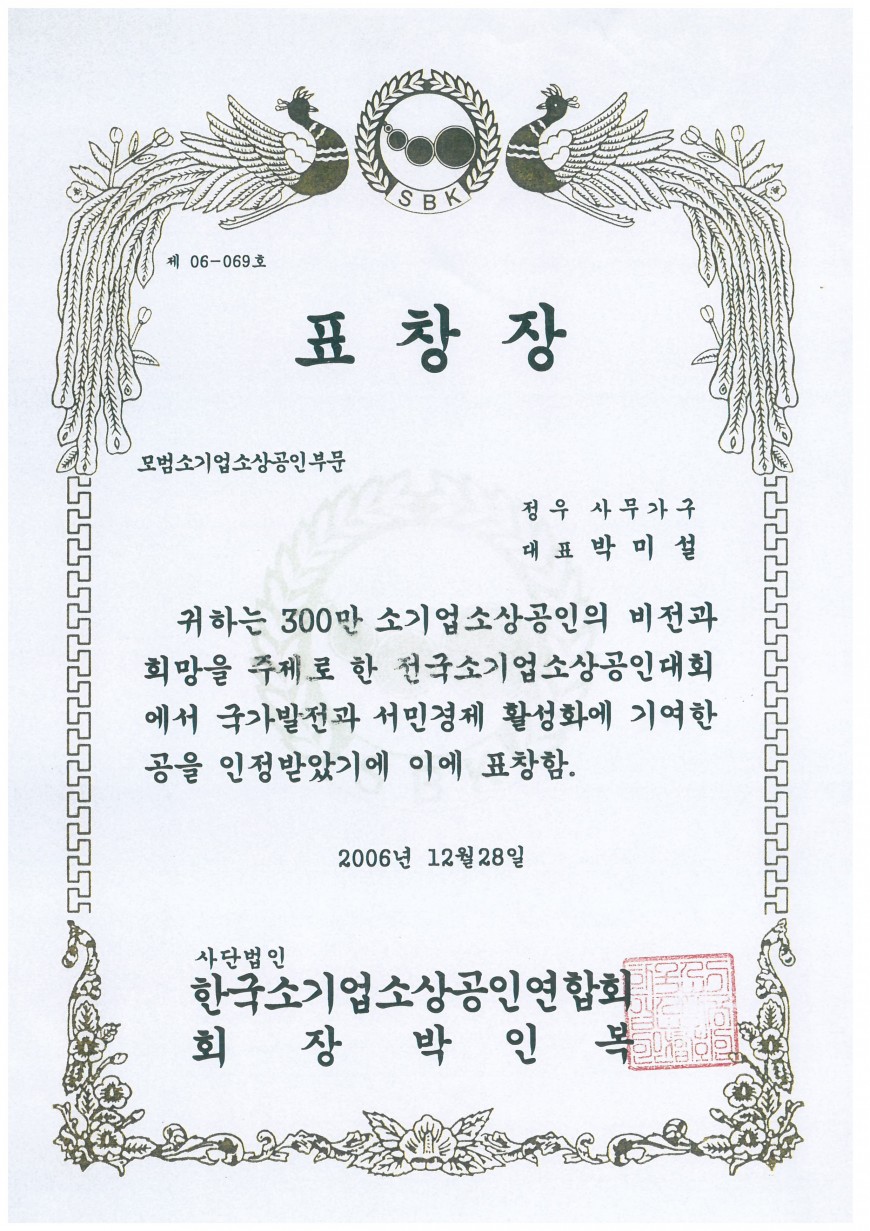 SBK
제 06-069호
표 창 장
모범소기업소상공인부문
정우 사무가구
대표 박 미 설
귀하는 300만 소기업소상공인의 비전과
희망을 주제로 한 전국소기업소상공인대회
에서 국가발전과 서민경제 활성화에 기여한
공을 인정받았기에 이에 표창함.
2006년 12월28일
사단법인
한국소기업소상공인연합회
회 장 박 인 복